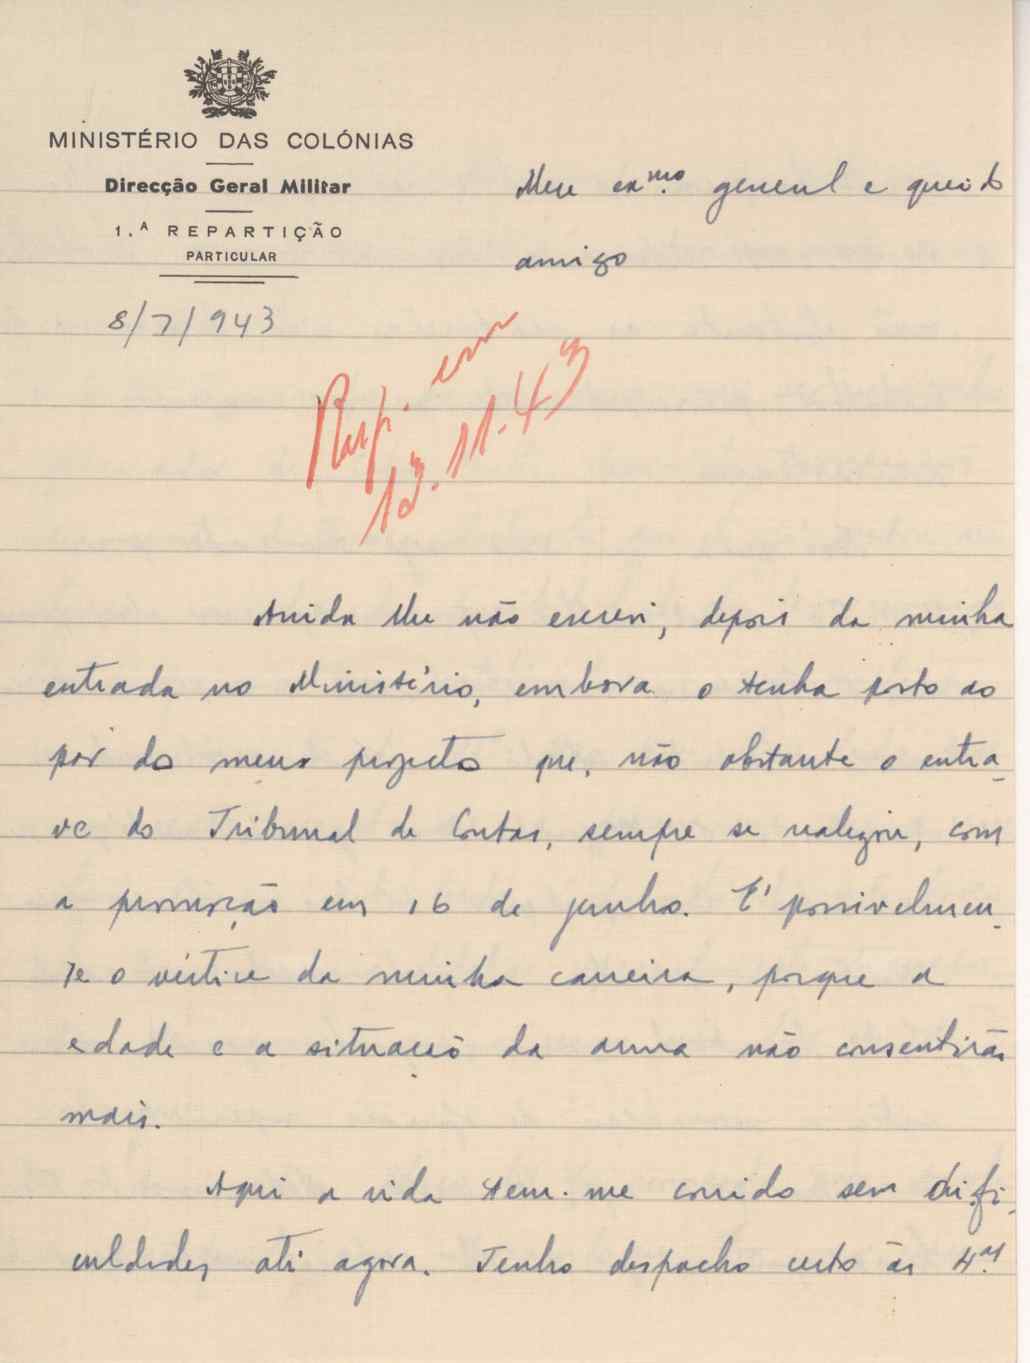 MINISTÉRIO DAS COLÓNIAS
Direcção Geral Militar
1.ª REPARTIÇÃO
PARTICULAR
8/7/943
Meu exmo. general e querido
amigo
Resp. em
13.11.43
Ainda lhe não escrevi, depois da minha
entrada no Ministério, embora o tenha posto ao
par do meus projectos que, não obstante o entra-
ve do Tribunal de Contas, sempre se realizou, com
a promoção em 16 de junho. E' possivelmen-
te o vértice da minha carreira, porque a
edade e a situação da arma não consentirão
mais.
Aqui a vida tem-me corrido sem difi-
culdades até agora. Tenho despacho certo às 4.as